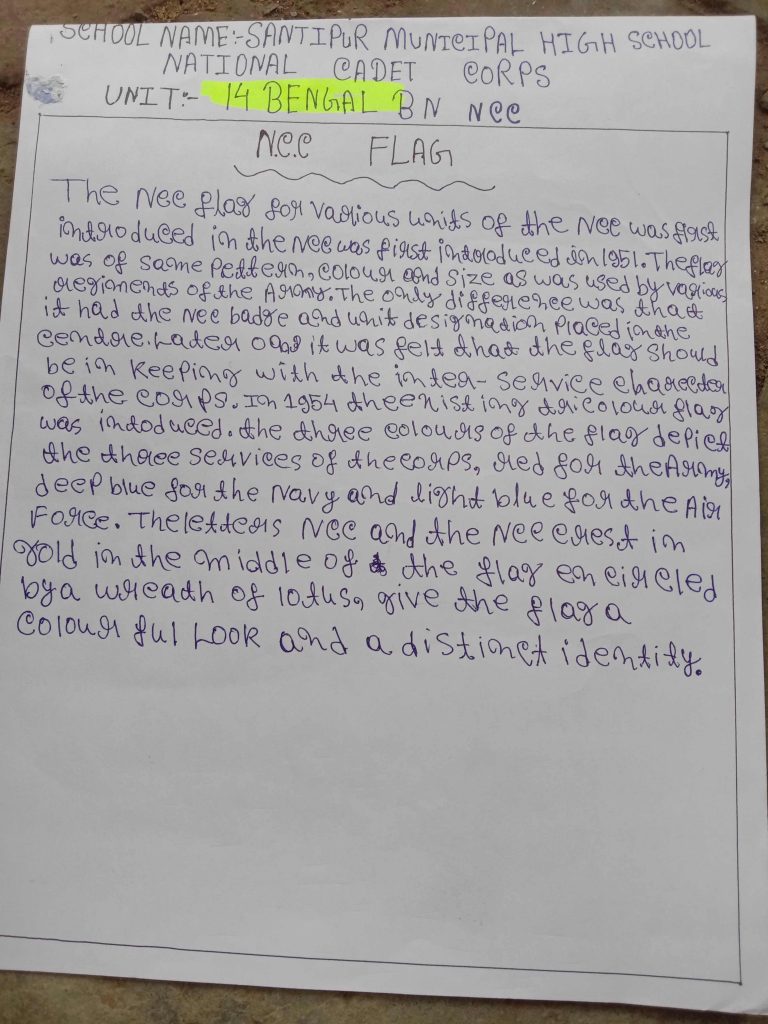 SCHOOL NAME:-SANTIPUR MUNICIPAL HIGH SCHOOL
NATIONAL CADET CORPS
UNIT:- 14 BENGAL BN NCC
N.C.C FLAG
The NCC flag for various units of the NCC was first
introduced in the NCC was first introduced in 1951. The flag
was of same pettern, colour and size as was used by various
regiments of the Army. The only difference was that
it had the NCC badge and unit designation placed in the
centre. Later it was felt that the flag should
be in keeping with the inter-service charecter
of the corps. In 1954 the existing tricolour flag
was intoduced. the three colours of the flag depict
the three services of the corps, red for the Army,
deep blue for the Navy and light blue for the Air
Force. The letters NCC and the NCC crest in
gold in the middle of the flag encircled
by a wreath of lotus, give the flag a
colour ful Look and a distinct identity.